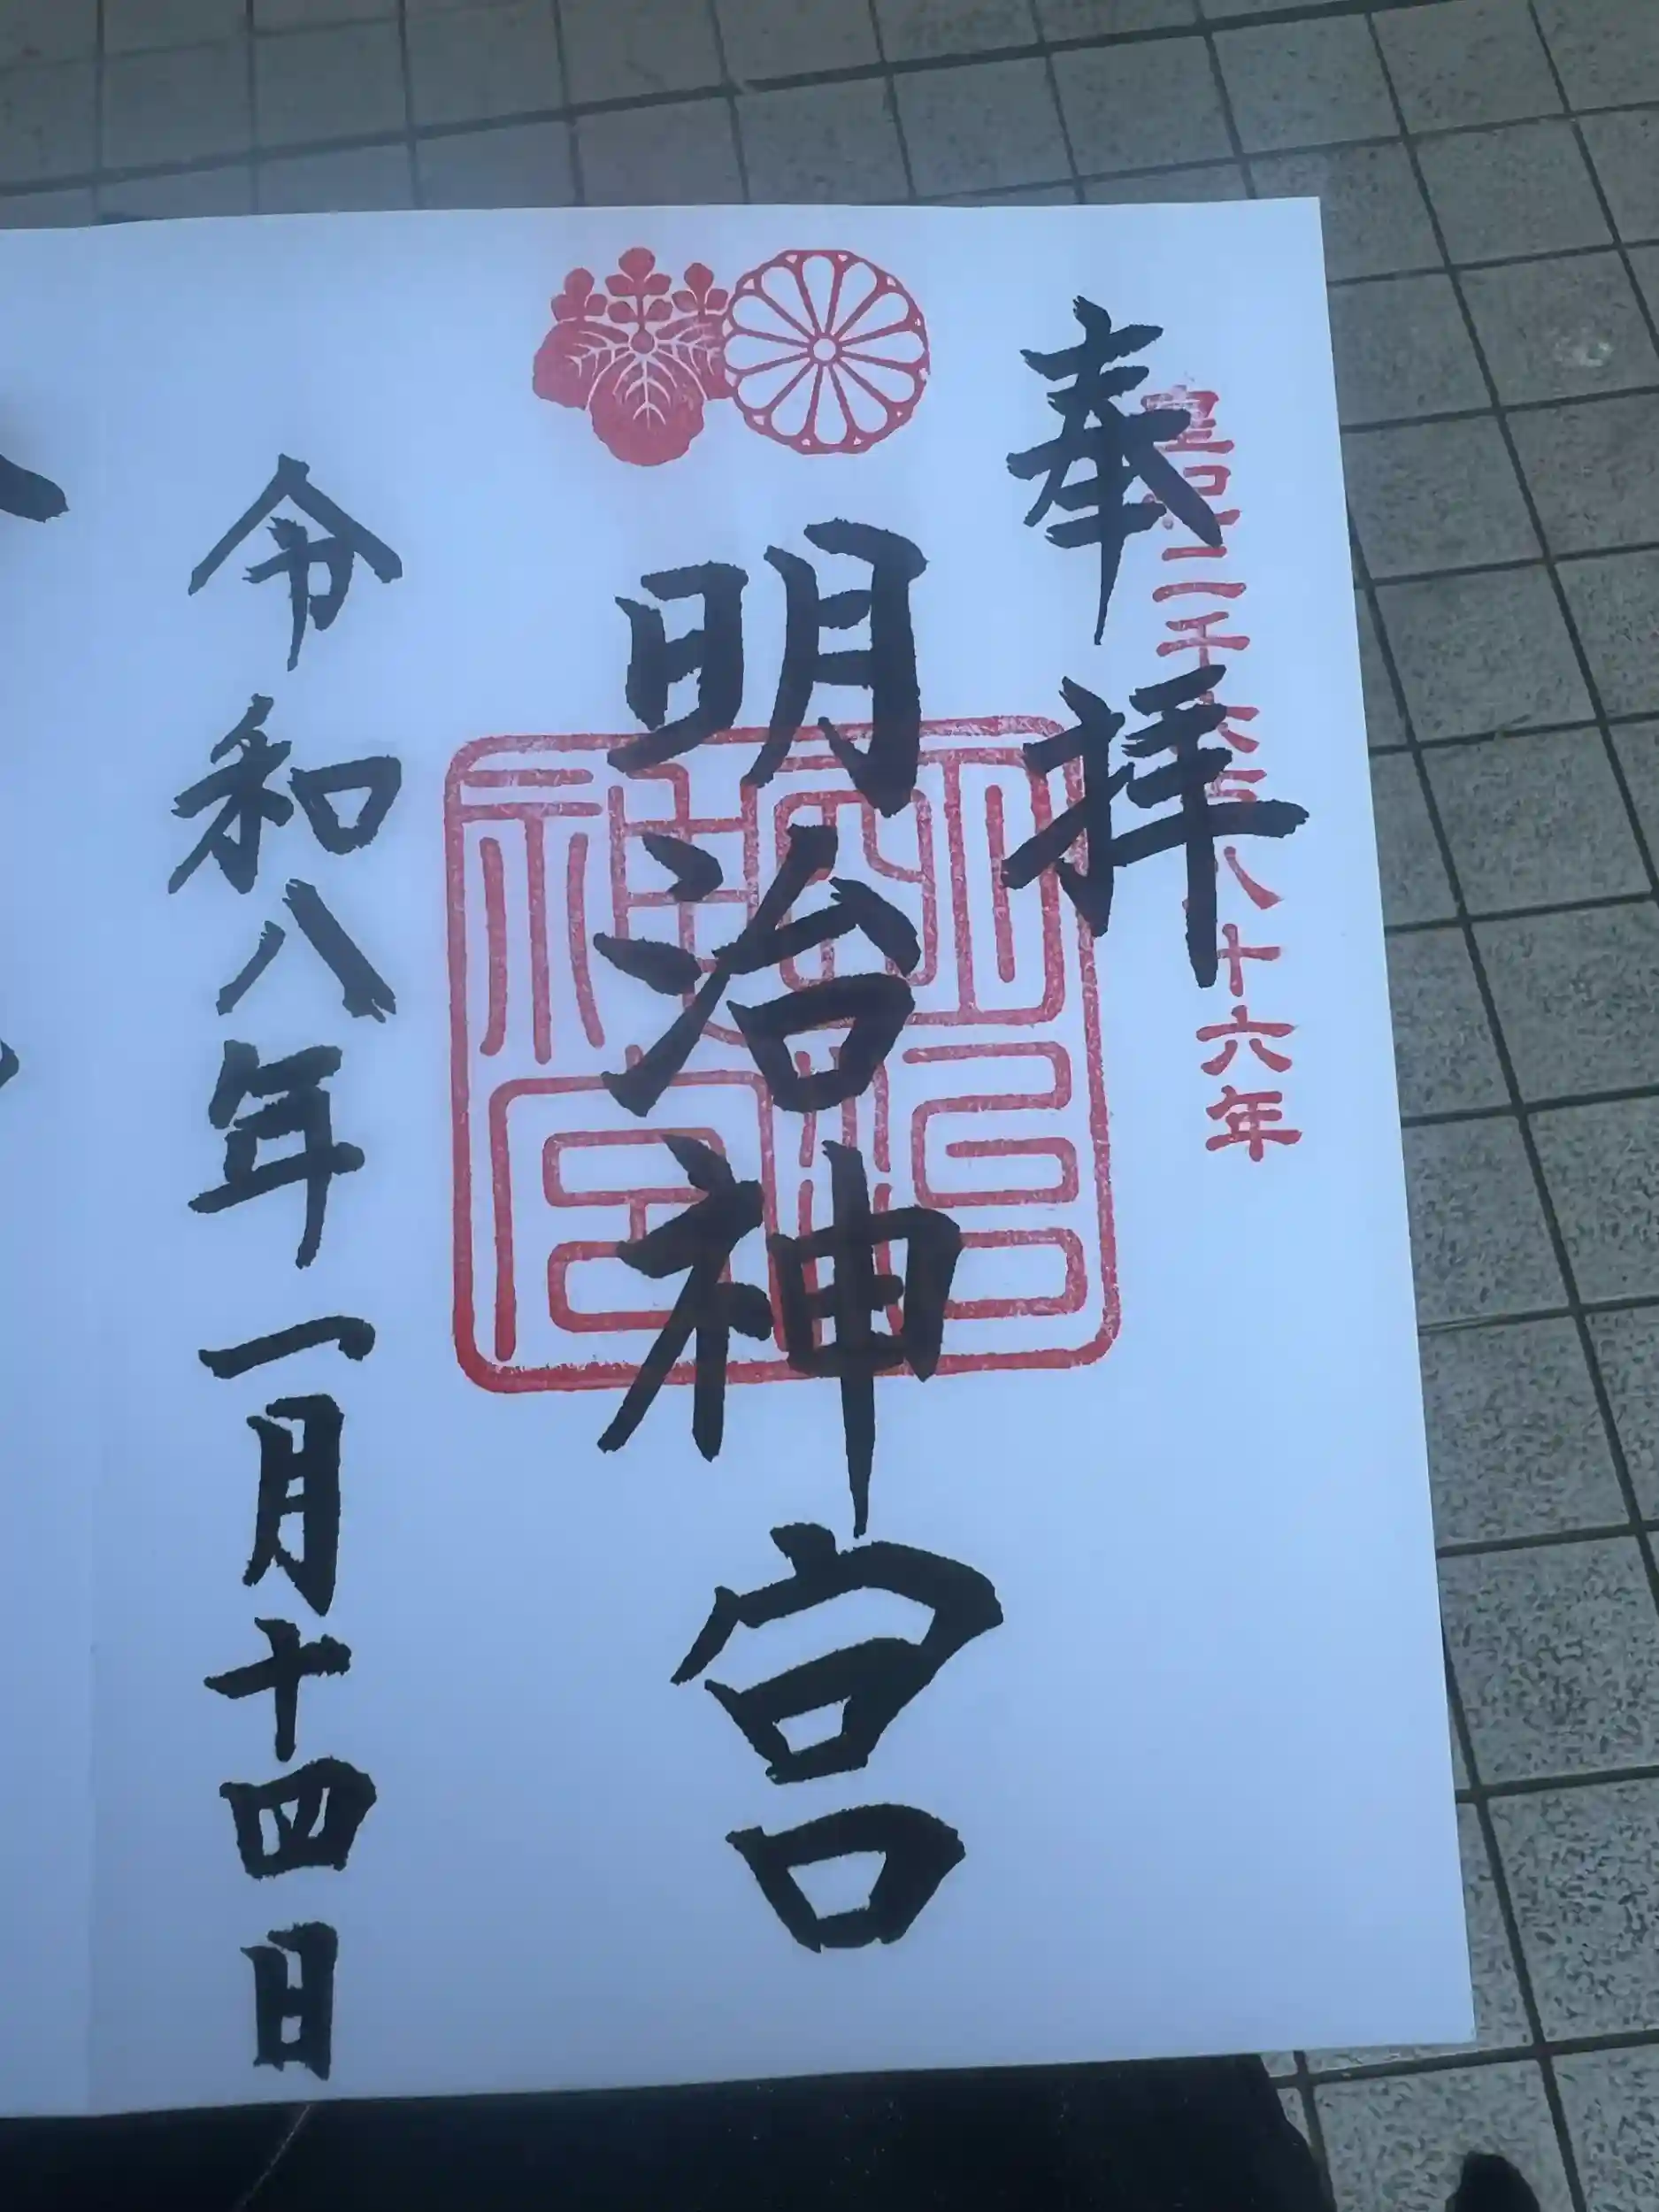 皇紀二千六百八十六年
奉拝
明治神宮
明治神宮
令和八年一月十四日